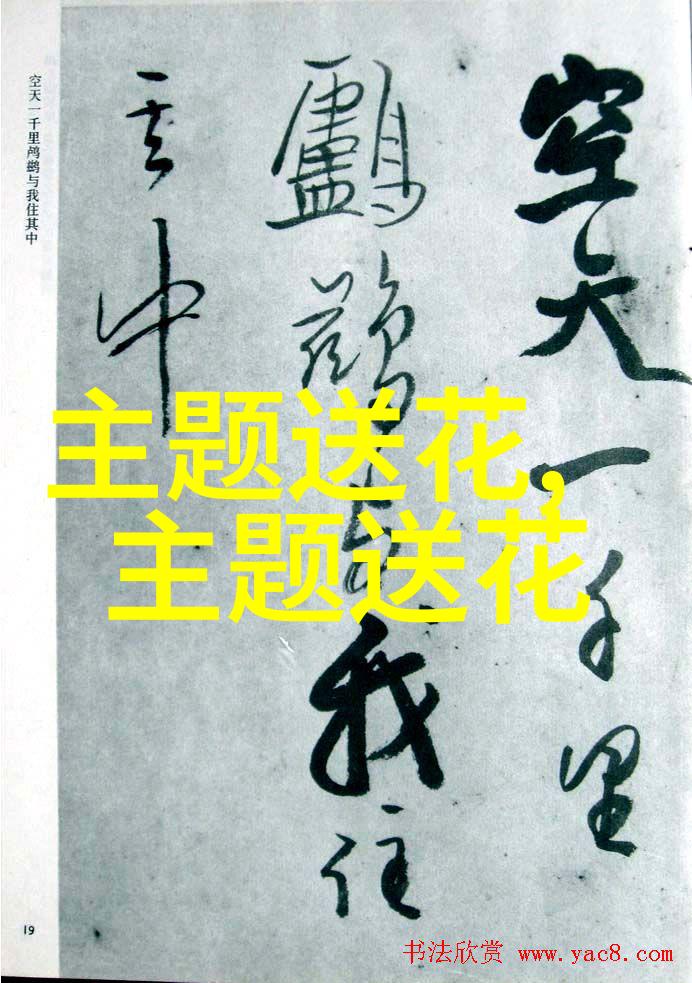 空天一千里
鸕鷀与我住
其中
空天一千里鸬鹚与我住其中
主题送花,
主题送花
19
书法欣赏 www.yac8.com